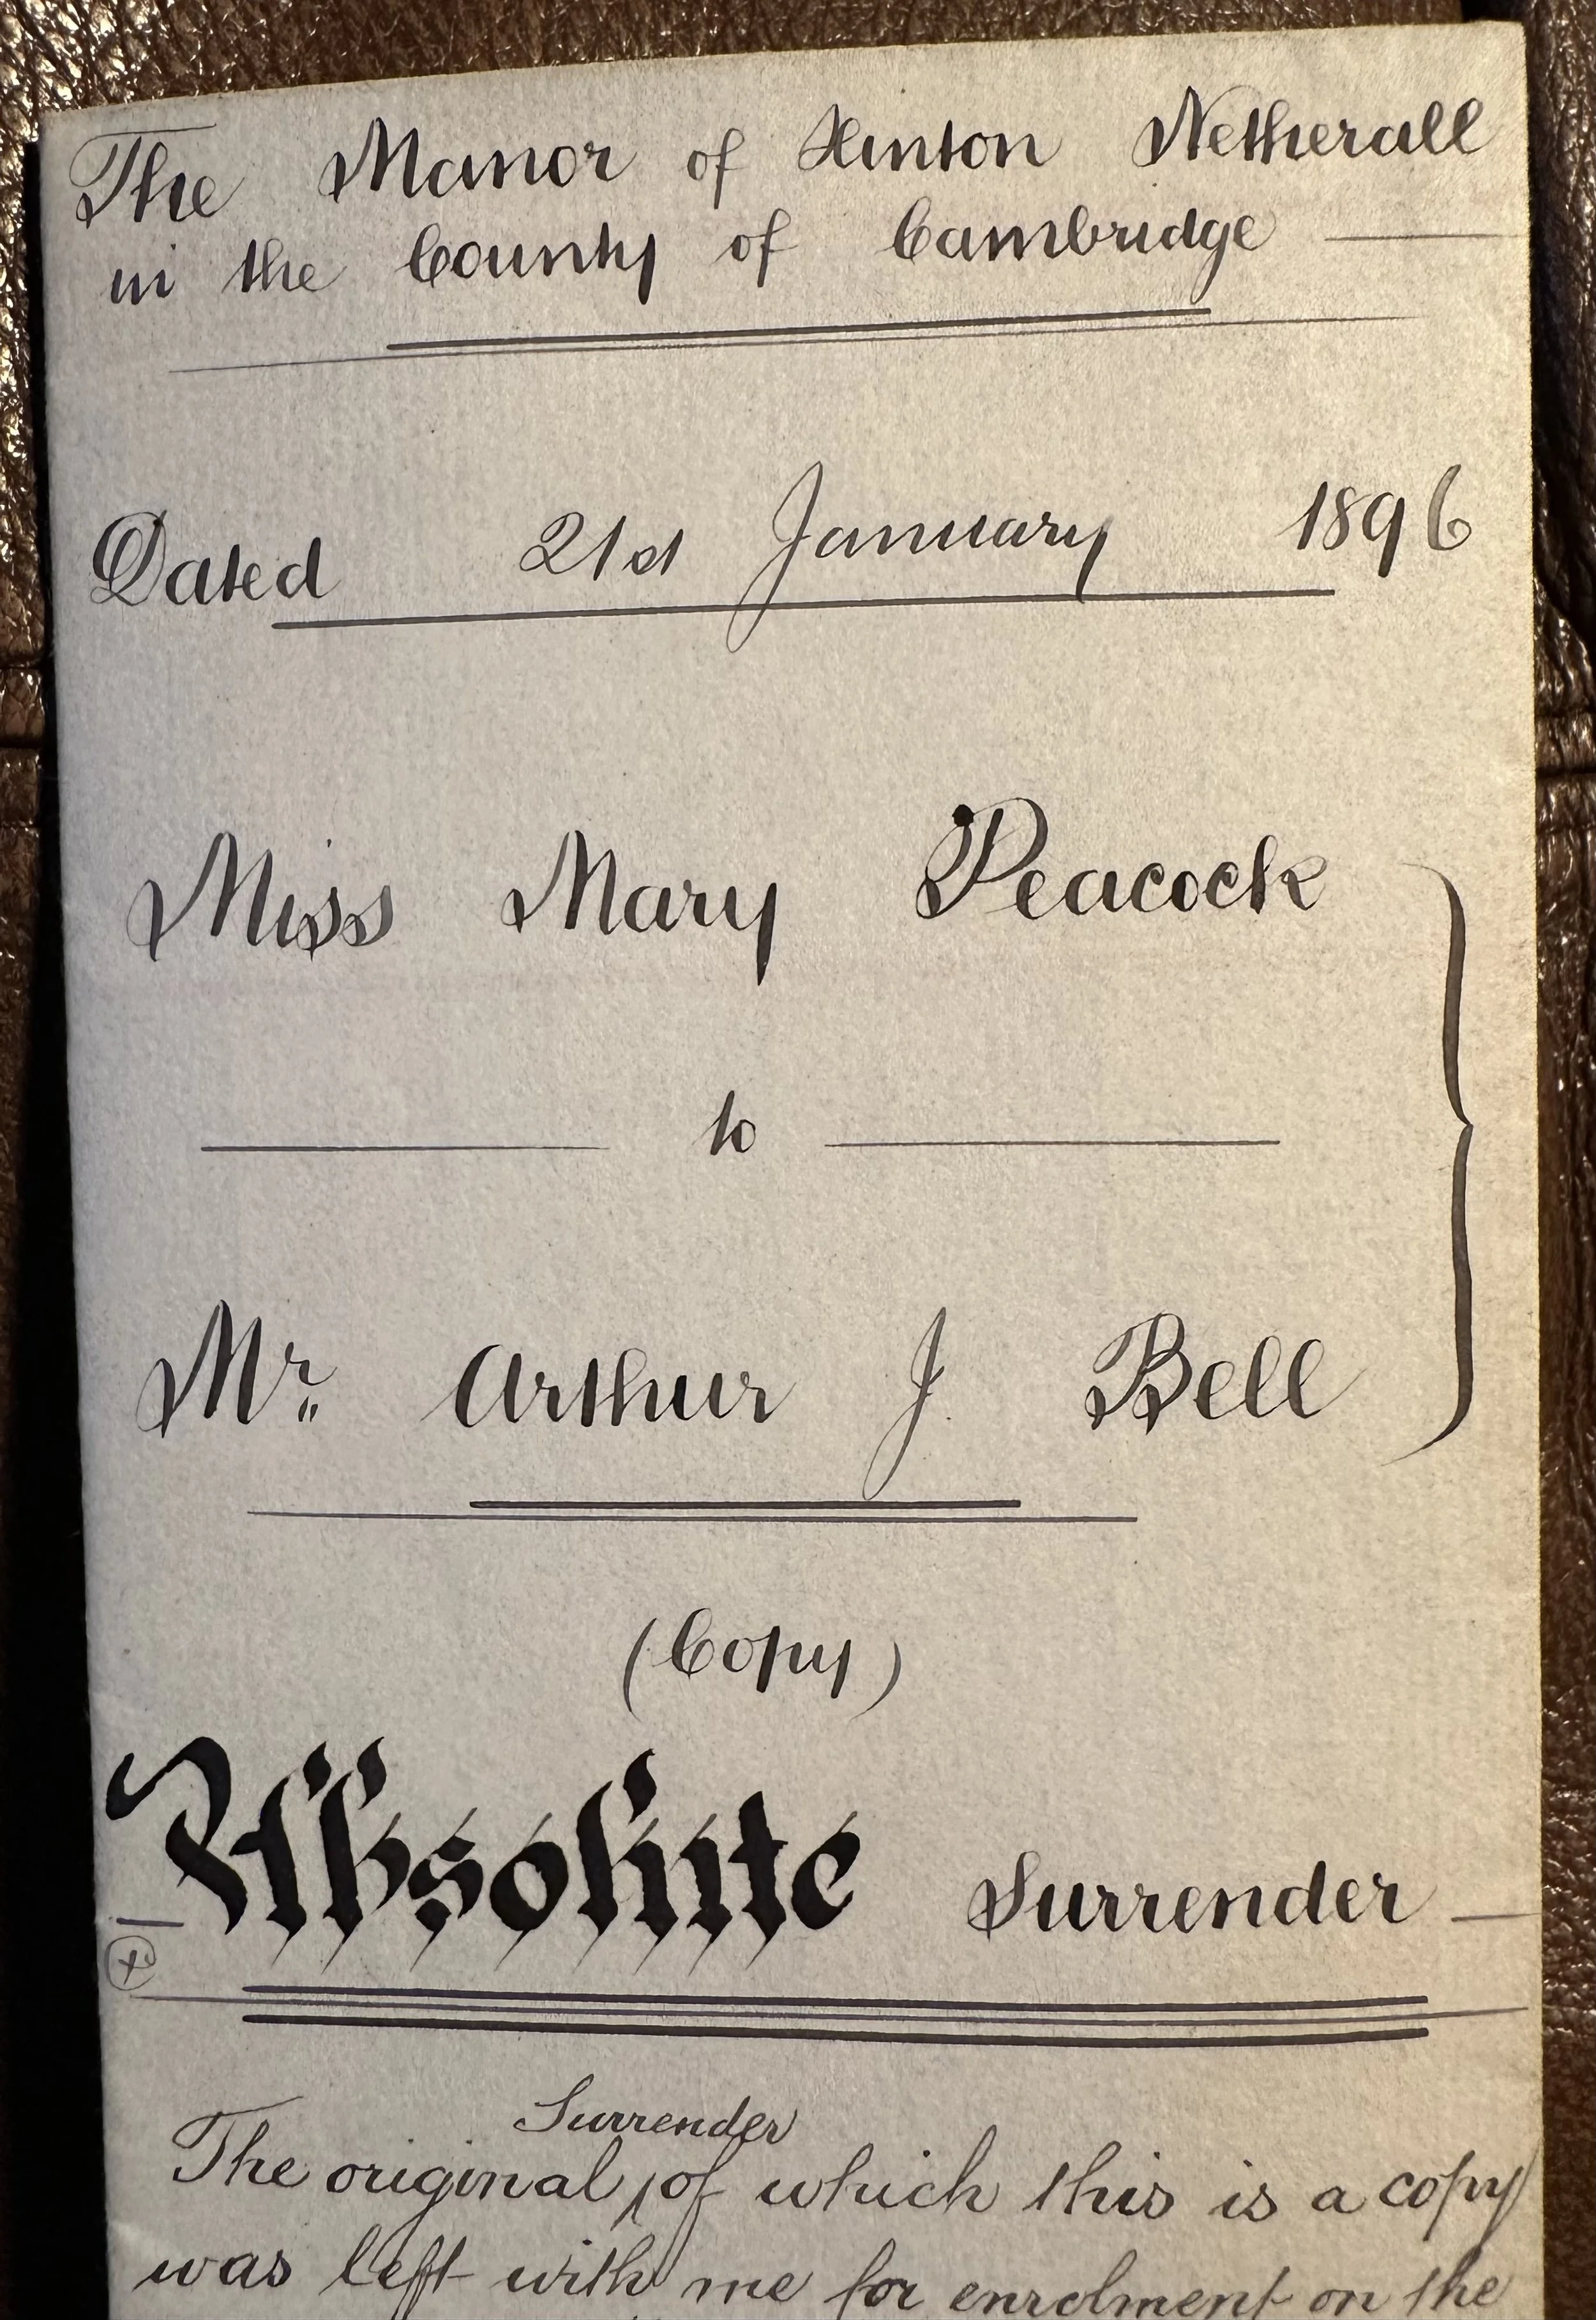 The Manor of Hinton Netherall
in the County of Cambridge
Dated 21st January 1896
Miss Mary Peacock
to
Mr. Arthur J. Bell
(Copy)
Absolute Surrender
Surrender
The original ‸ of which this is a copy
was left with me for enrolment on the